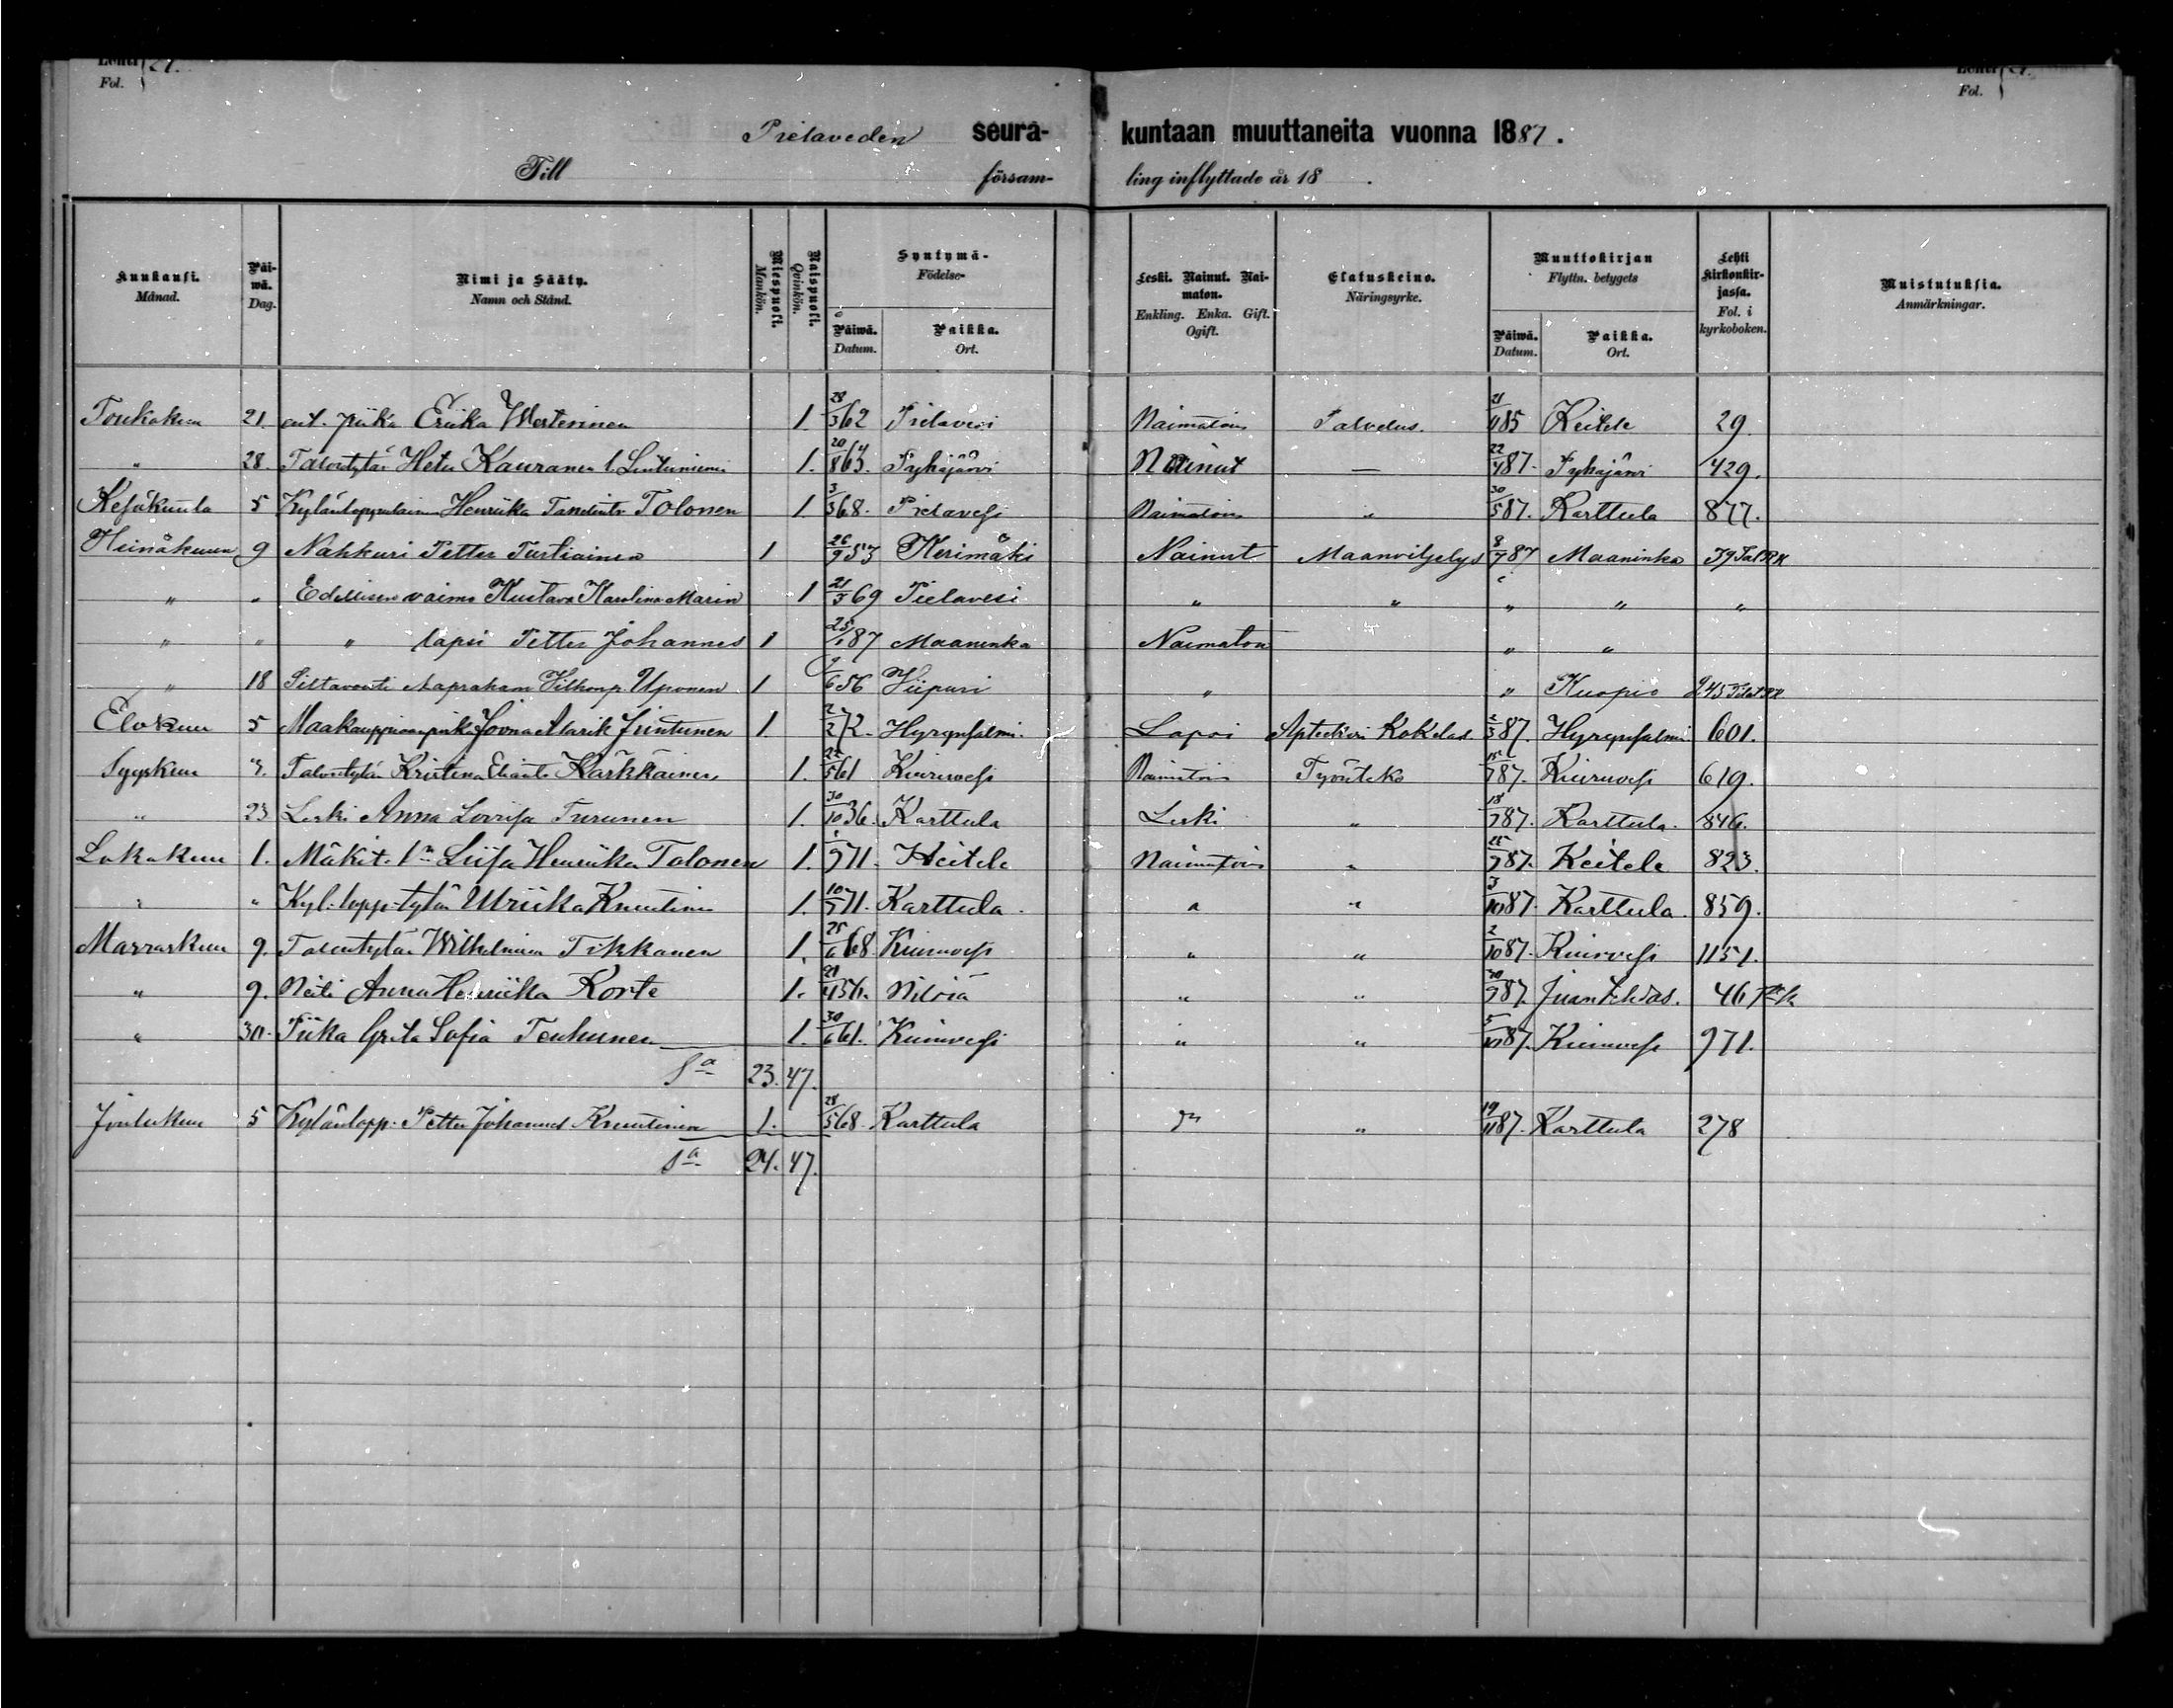 Lehti 21. Lehti 21.
Fol. Fol.
Pielaveden seura- kuntaan muuttaneita vuonna 1887.
Till försam- ling inflyttade år 18 .
Kuukausi. Månad. Päiwä. Dag. Nimi ja Sääty. Namn och Stånd. Miespuoli. Mankön. Naispuoli. Qvinkön. Syntymä- Födelse- Päiwä. Datum. Paikka. Ort. Leski. Nainut. Naimaton. Enkling. Enka. Gift. Ogift. Elatuskeino. Näringsyrke. Muuttokirjan Flyttn. betygets Päiwä. Datum. Paikka. Ort. Lehti kirkonkirjassa. Fol. i kyrkoboken. Muistutuksia. Anmärkningar.
Toukokuu 21. ent. piika Eriika Westerinen 1. 28/3 62 Pielavesi Naimatoin Palvelus. 21/11 85 Keitele 29.
" 28. Talontytär Heta Kauranen l. Lintuniemi 1. 20/8 64. Pyhäjärvi Nainut — 22/4 87. Pyhäjärvi 429.
Kesäkuuta 5 Kylänloppulainen Henriika Tolonen 1 3/3 68. Pielavesi Naimatoin " 30/5 87. Karttula 877.
Heinäkuun 9 Nahkuri Petter Partiainen 1 26/9 53 Kerimäki Nainut Maanviljelys 8/7 87 Maaninka
" " Edellisen vaimo Kustava Karolina Marin 1 21/5 69 Pielavesi " " " " "
" " " lapsi Petter Johannes 1 25/1 87 Maaninka Naimaton " "
" 18 Siltavouti Aapraham Uponen 1 9/6 56 Viipuri " " Kuopio 245
Elokuu 5 Maakauppiaan poika Joona Alarik Juntunen 1 2/2 72. Hyrynsalmi. Lapsi 2/3 87. Hyrynsalmi 601.
Syyskuu 3. Talontytär Kristina Karkkainen 1. 25/5 61 Kiuruvesi Naimatoin Työnteko 15/7 87. Kiuruvesi 619.
" 23 Leski Anna Lovisa Turunen 1. 30/10 36. Karttula Leski " 18/7 87. Karttula. 846.
Lokakuu 1. Mäkit. tr Liisa Henriika Tolonen 1. 1/9 71. Keitele Naimatoin " 25/9 87. Keitele 823.
" " Kyl. lopp. tytär Ulriika Knuutinen 1. 10/5 71. Karttula. " " 3/10 87. Karttula. 859.
Marraskuu 9. Talontytär Wilhelmiina Tikkanen 1. 25/6 68. Kiuruvesi " " 2/10 87. Kiuruvesi 1151.
" 9. Neiti Anna Henriika Korte 1. 21/4 56. Nilsiä " " 30/9 87. Juantehdas. 46
" 30. Piika Greta Sofia Tenhunen 1. 30/6 61. Kiuruvesi " " 5/10 87. Kiuruvesi 971.
Sa 23. 47.
Joulukuu 5 Kylänlopp. Petter Johannes Knuutinen 1. 28/5 68. Karttula " 19/11 87. Karttula 278
Sa 24. 47.